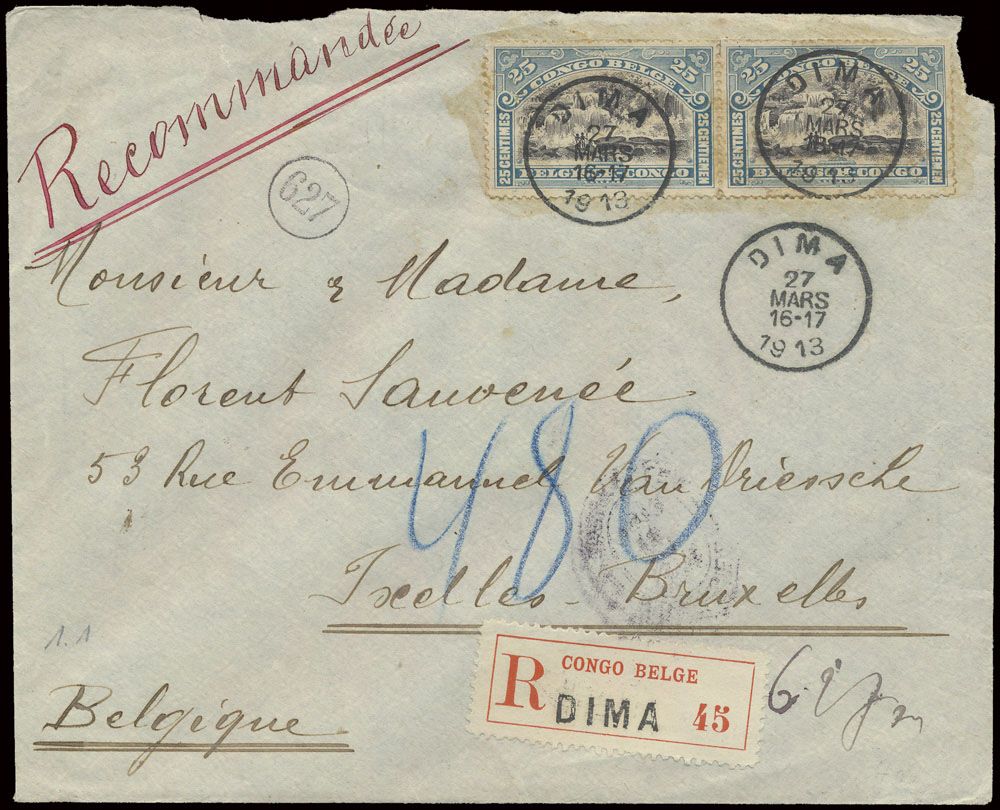 Recommandée
25 CONGO BELGE 25
25 CENTIMES
25 CENTIEMEN
BELGISCH CONGO
25 CONGO BELGE 25
25 CENTIMES
25 CENTIEMEN
BELGISCH CONGO
DIMA
27
MARS
16-17
1913
DIMA
27
MARS
16-17
1913
627
DIMA
27
MARS
16-17
1913
Monsieur & Madame,
Florent Sauvenée
53 Rue Emmanuel Van Driessche
480
Ixelles - Bruxelles
1.1
Belgique
R
CONGO BELGE
DIMA 45